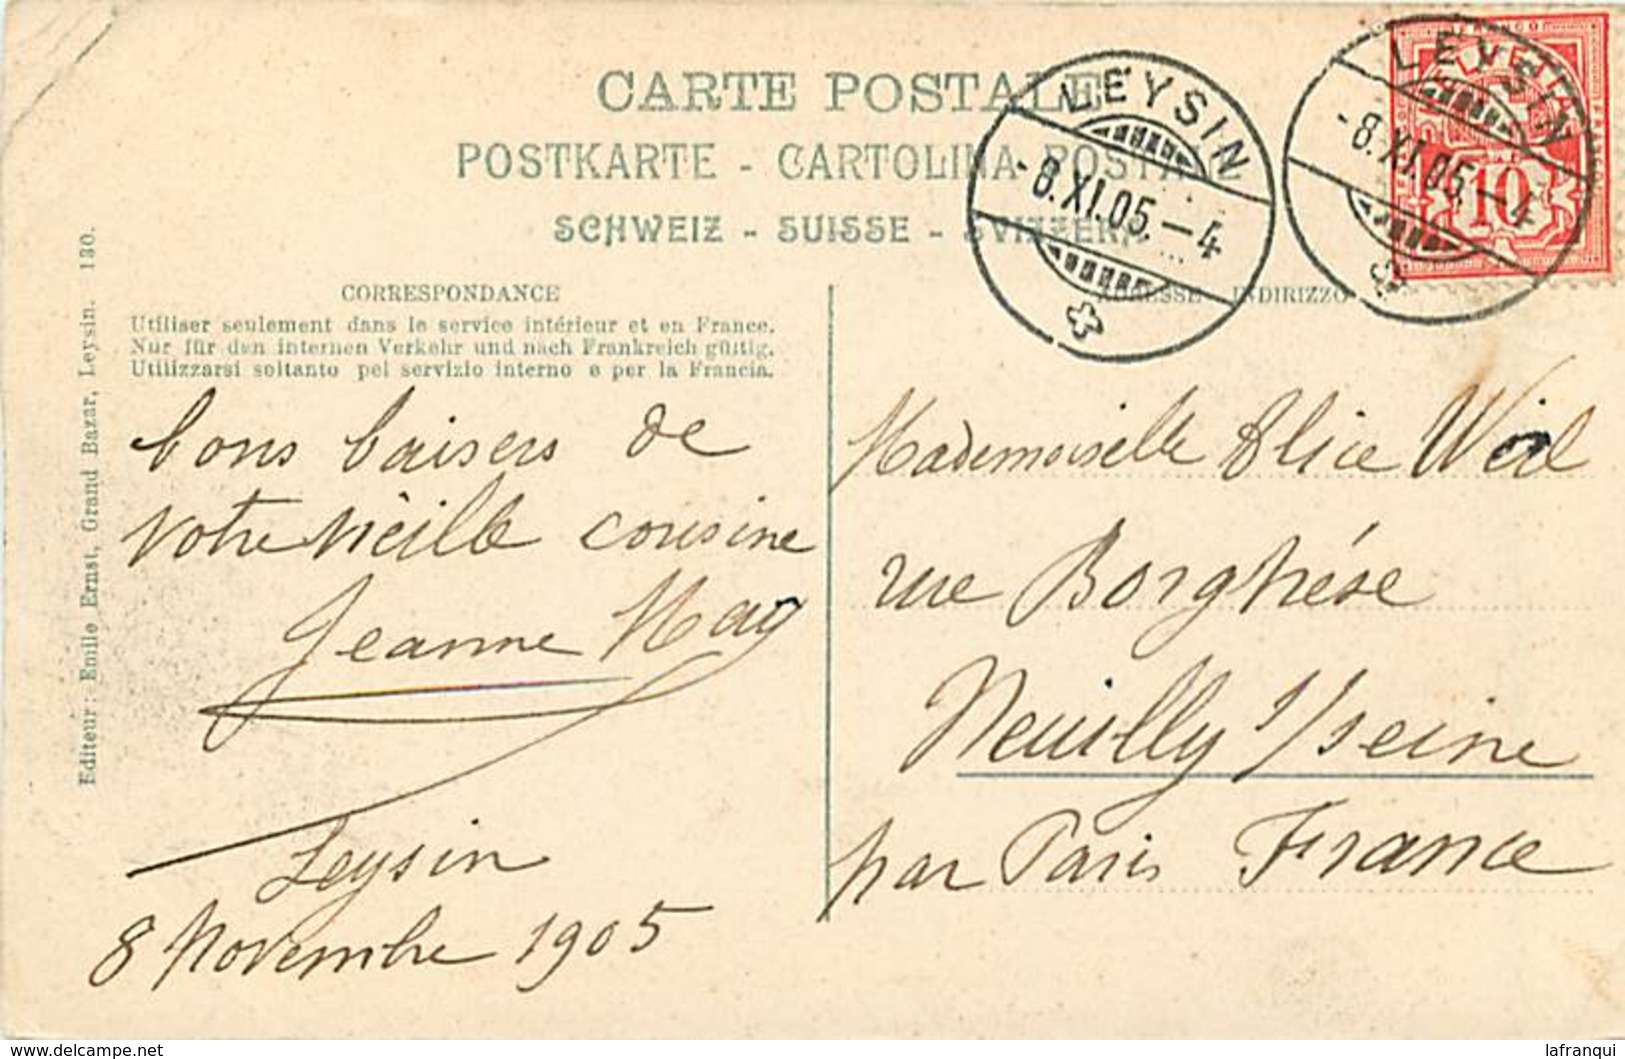 CARTE POSTALE
POSTKARTE - CARTOLINA POSTALE
SCHWEIZ - SUISSE - SVIZZERA
LEYSIN
-8.XI.05.-4
LEYSIN
-8.XI.05.-4
10
CORRESPONDANCE
Utiliser seulement dans le service intérieur et en France.
Nur für den internen Verkehr und nach Frankreich gültig.
Utilizzarsi soltanto pel servizio interno e per la Francia.
ADRESSE - INDIRIZZO
Editeur: Emile Ernst, Grand Bazar, Leysin. 130.
bons baisers de
votre vieille cousine
Jeanne May
Leysin
8 Novembre 1905
Mademoiselle Alice Weil
rue Borghèse
Neuilly s/seine
par Paris France
www.delcampe.net
lafranqui